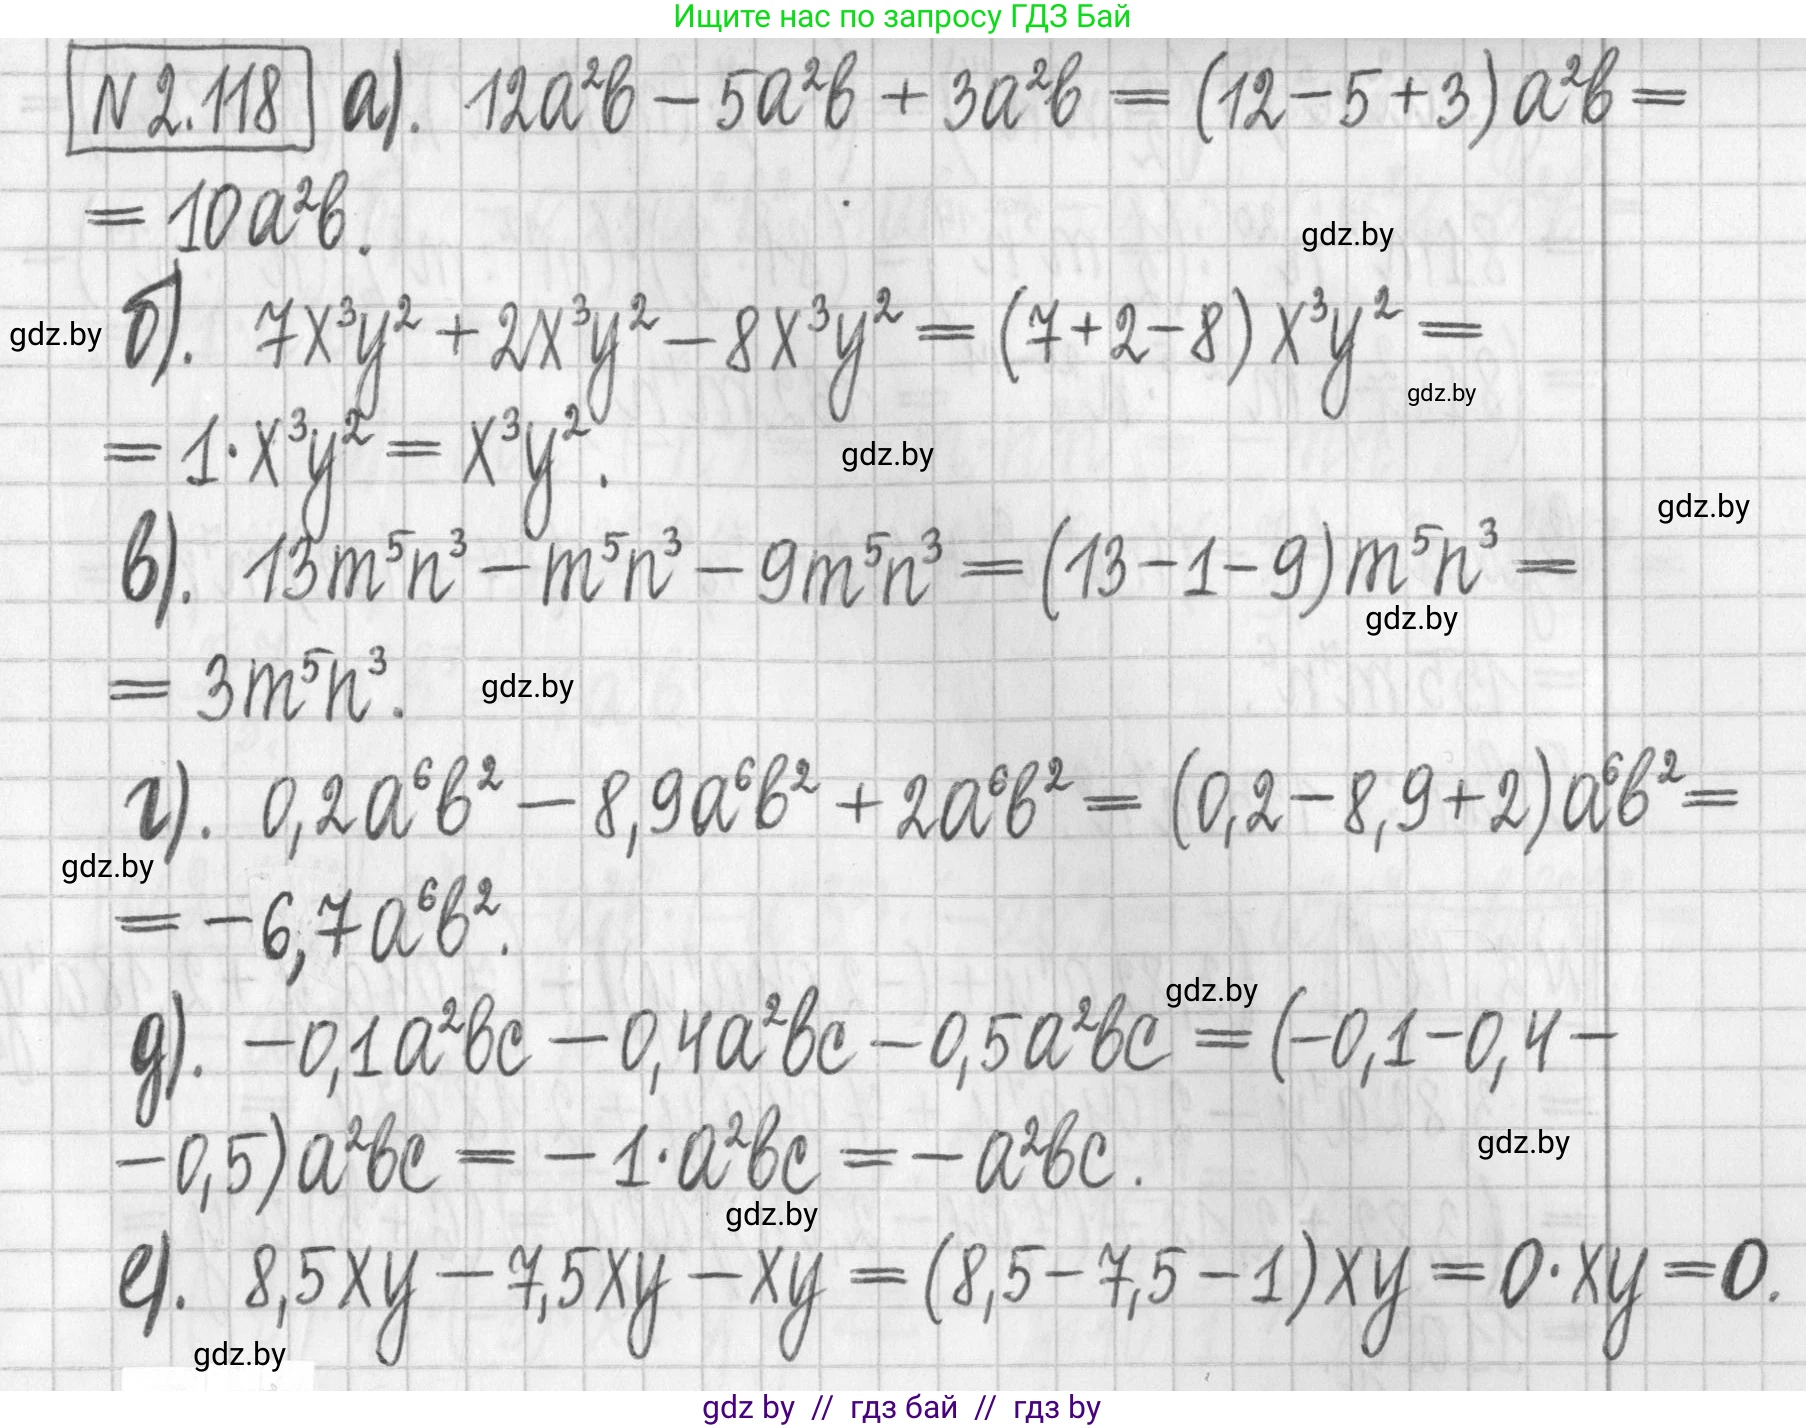 Ищите нас по запросу ГДЗ Бай
N 2.118 а). 12a²b − 5a²b + 3a²b = (12 − 5 + 3) a²b =
= 10a²b.
gdz.by
gdz.by б). 7x³y² + 2x³y² − 8x³y² = (7 + 2 − 8) x³y² =
gdz.by
= 1 · x³y² = x³y².
gdz.by
gdz.by
в). 13m⁵n³ − m⁵n³ − 9m⁵n³ = (13 − 1 − 9) m⁵n³ =
gdz.by
= 3m⁵n³.
gdz.by
г). 0,2a⁶b² − 8,9a⁶b² + 2a⁶b² = (0,2 − 8,9 + 2) a⁶b² =
gdz.by
= −6,7a⁶b².
gdz.by
д). −0,1a²bc − 0,4a²bc − 0,5a²bc = (−0,1 − 0,4 −
− 0,5) a²bc = −1 · a²bc = −a²bc.
gdz.by
gdz.by
е). 8,5xy − 7,5xy − xy = (8,5 − 7,5 − 1) xy = 0 · xy = 0.
gdz.by
gdz by // гдз бай // гдз by